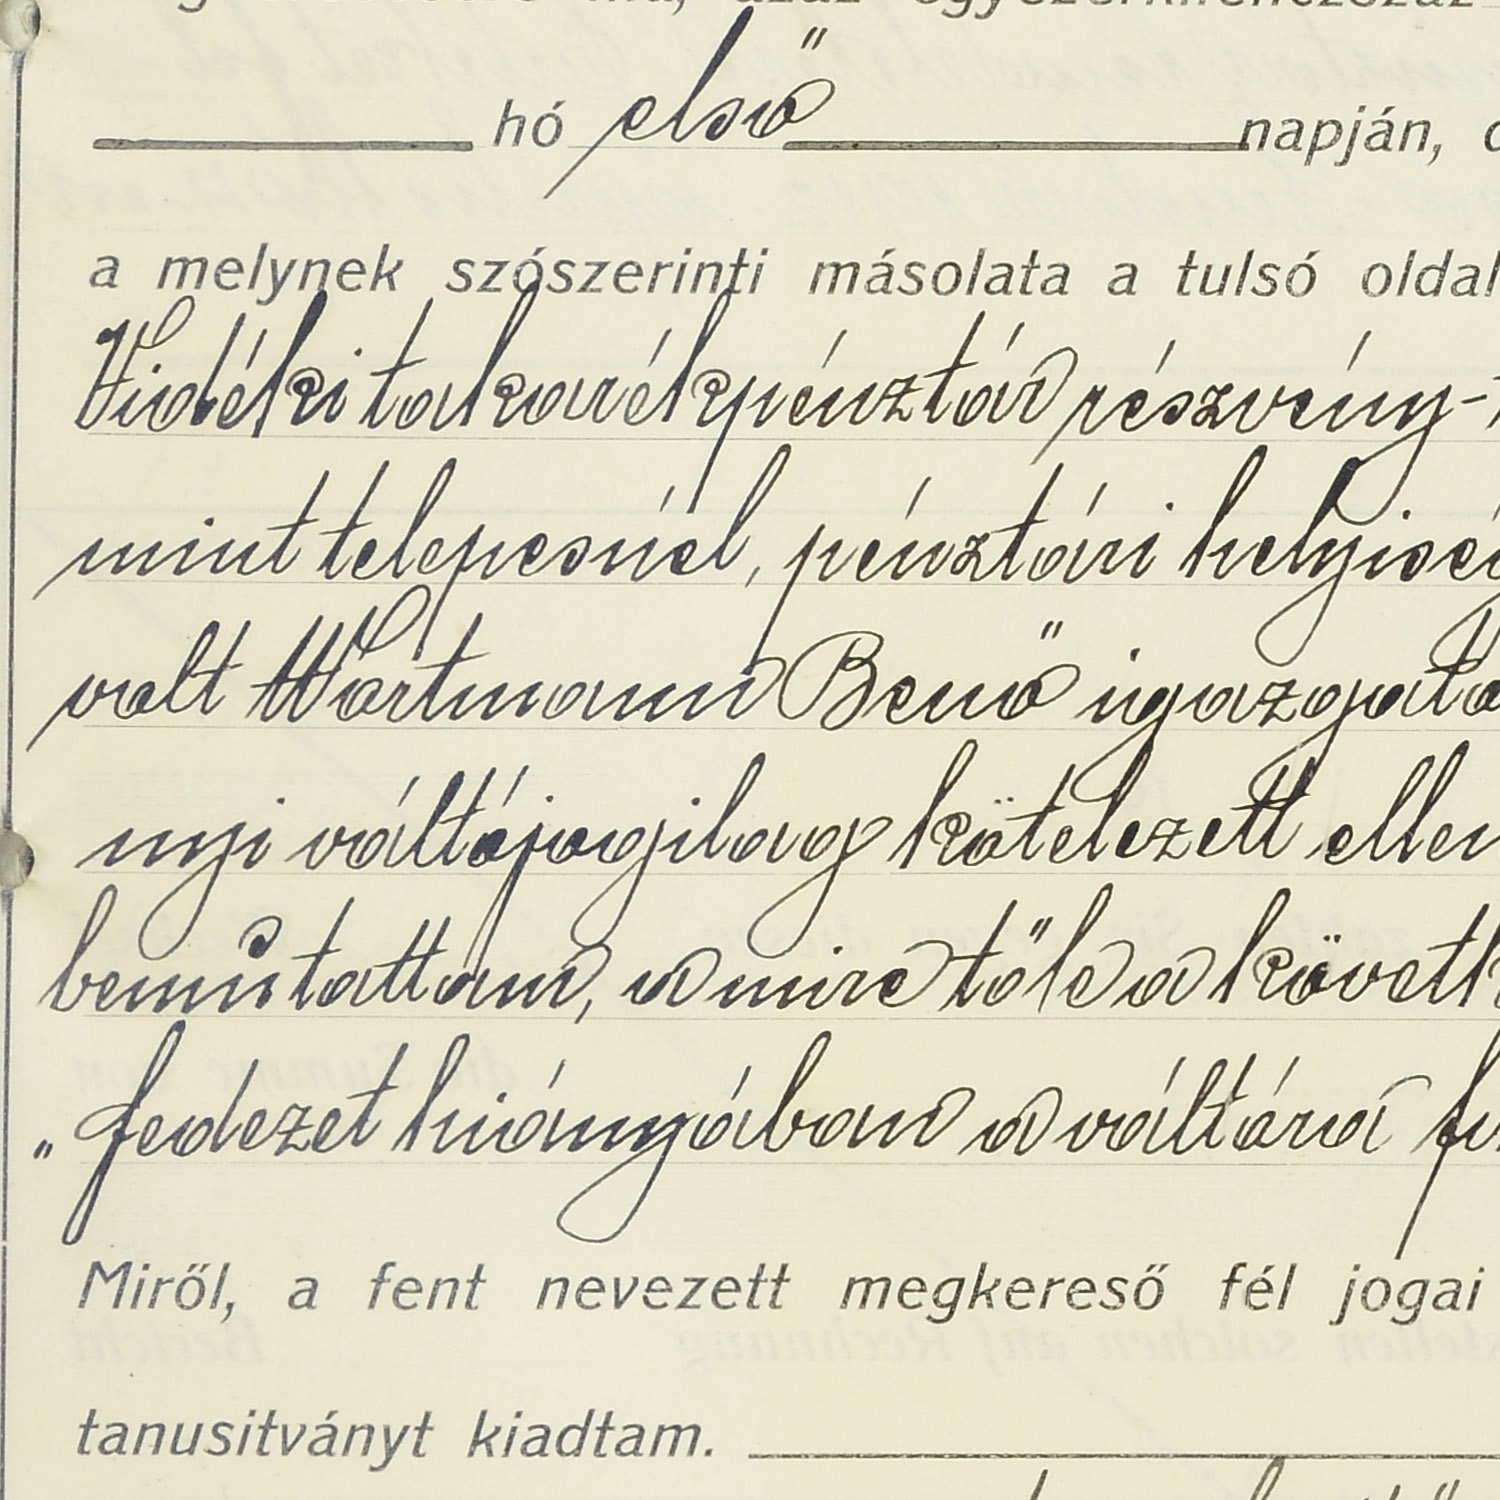 hó első napján,
a melynek szószerinti másolata a tulsó oldal
Vidéki takarékpénztár részvény-
mint telepesnél, pénztári helyisé
volt Wortmann Benő igazgató
nyi váltójogilag kötelezett ellen
bemutattam, a mire tőle a követk
„fedezet hiányában a váltóra
Miről, a fent nevezett megkereső fél jogai
tanusitványt kiadtam.